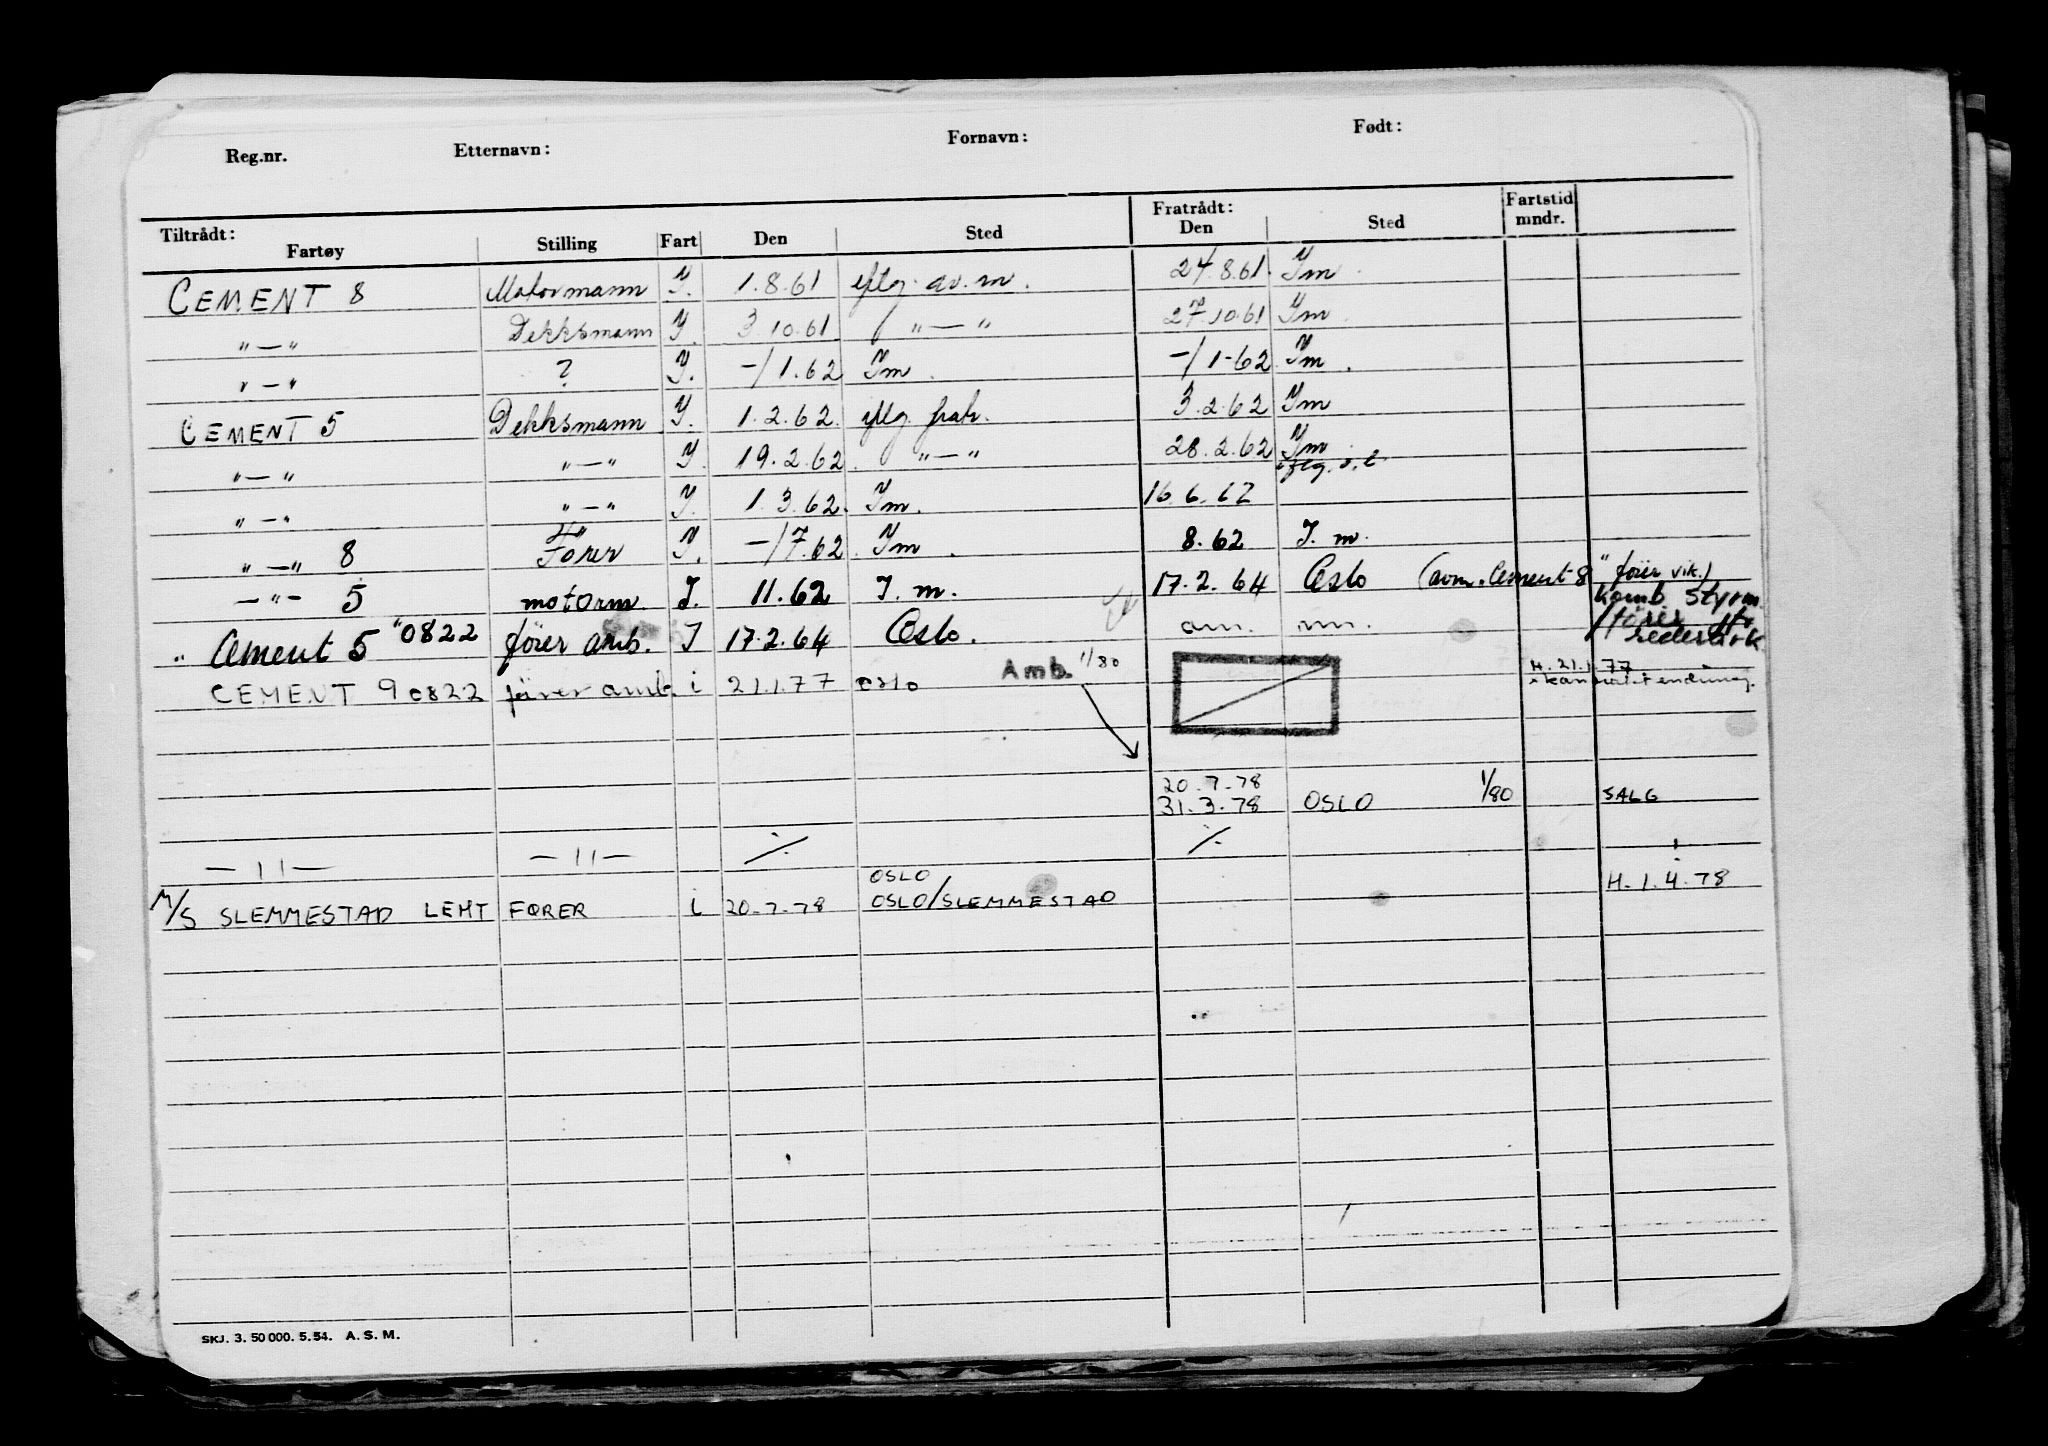 Reg.nr. Etternavn: Fornavn: Født:
Tiltrådt: Fratrådt: Fartstid
Fartøy Stilling Fart Den Sted Den Sted mndr.
CEMENT 8 Motormann I. 1.8.61 iflg. av. m. 24.8.61. Im.
"—" Dekksmann I. 3.10.61 "—" 27.10.61 Im.
"—" ? I. —/1.62 Im. —/1-62 Im.
CEMENT 5 Dekksmann I. 1.2.62. iflg. fratr. 3.2.62 Im
"—" "—" I. 19.2.62. "—" 28.2.62 Im
"—" "—" I. 1.3.62. Im. 16.6.62 iflg.
"—" 8 Fører I. —/7.62. Im. 8.62 I. m.
—"— 5 motorm. I. 11.62 I. m. 17.2.64 Oslo (avm. Cement 8 " fører vik.)
" Cement 5 "0822 fører amb. I 17.2.64 Oslo. am. m. Komb styrm.
/fører
CEMENT 9 0822 fører amb. i 21.1.77 oslo Amb. 1/80 H. 21.1.77
20.7.78
31.3.78 OSLO 1/80 SALG
—11— —11— ⁒ ⁒
OSLO H. 1.4.78
M/S SLEMMESTAD LEHT FØRER i 20.7.78 OSLO/SLEMMESTAD
SKJ. 3. 50 000. 5. 54. A. S. M.